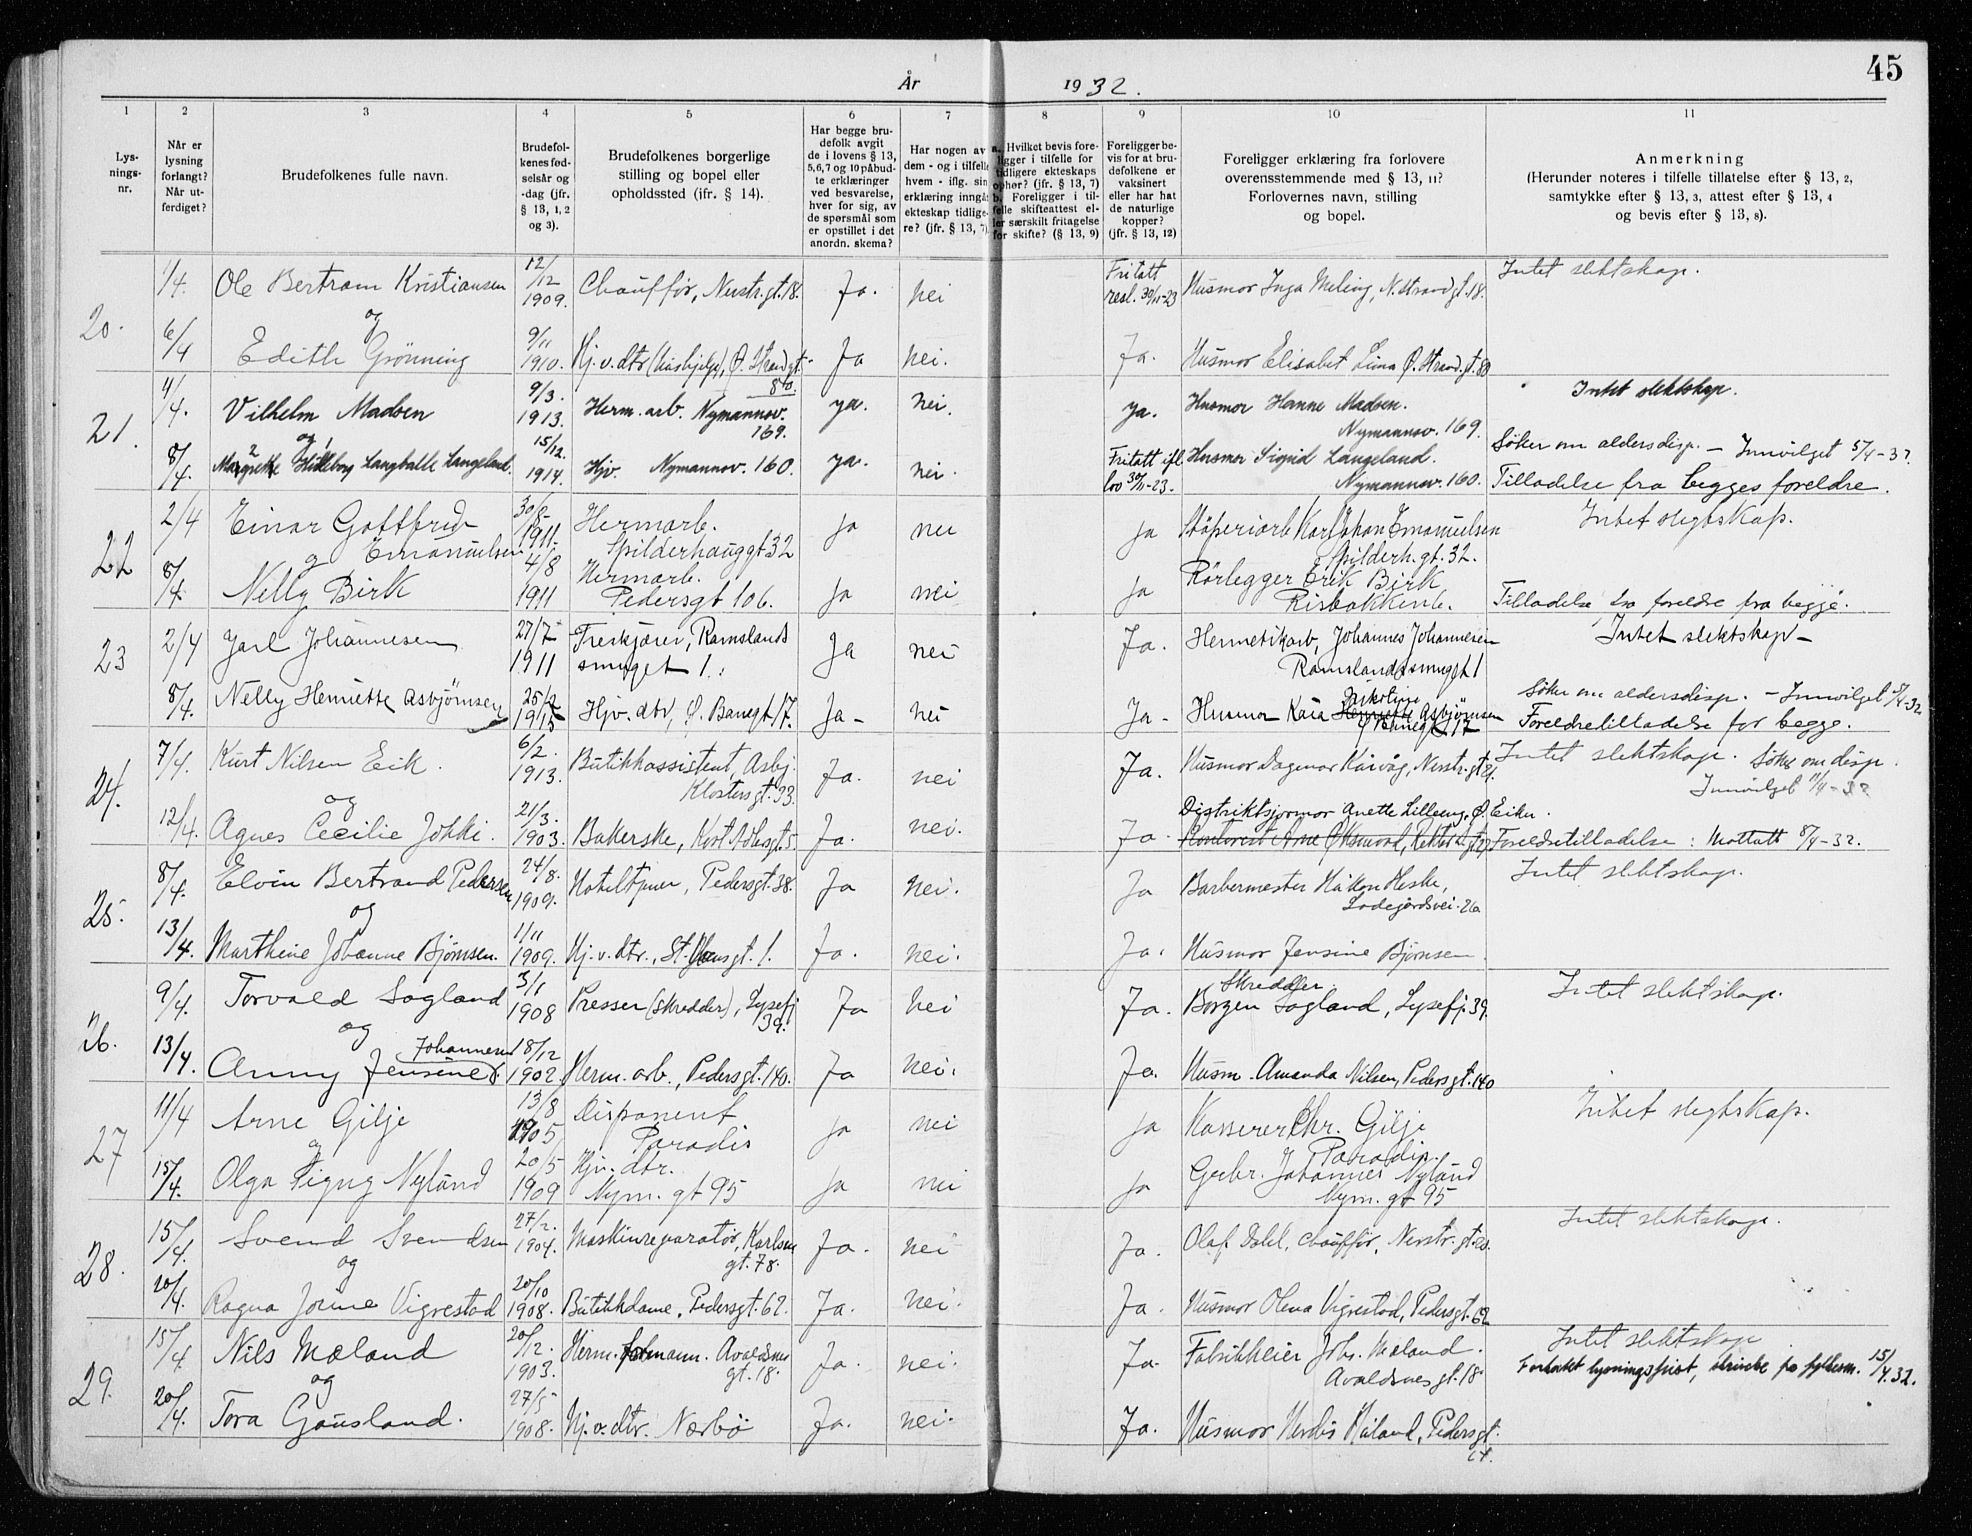 45
År 1932.
1 2 3 4 5 6 7 8 9 10 11
Lysningsnr.
Når er lysning forlangt? Når utferdiget?
Brudefolkenes fulle navn.
Brudefolkenes fødselsår og -dag (jfr. § 13, 1, 2 og 3).
Brudefolkenes borgerlige stilling og bopel eller opholdssted (jfr. § 14).
Har begge brudefolk avgit de i lovens § 13, 5,6,7 og 10 påbudte erklæringer ved besvarelse, hver for sig, av de spørsmål som er opstillet i det anordn. skema?
Har nogen av dem - og i tilfelle hvem - iflg. sin erklæring inngåt ekteskap tidligere? (jfr. § 13, 7)
a. Hvilket bevis foreligger i tilfelle for tidligere ekteskaps ophør? (jfr. § 13, 7) b. Foreligger i tilfelle skifteattest eller særskilt fritagelse for skifte? (§ 13, 9)
Foreligger bevis for at brudefolkene er vaksinert eller har hat de naturlige kopper? (jfr. § 13, 12)
Foreligger erklæring fra forlovere overensstemmende med § 13, 11? Forlovernes navn, stilling og bopel.
Anmerkning (Herunder noteres i tilfelle tillatelse efter § 13, 2, samtykke efter § 13, 3, attest efter § 13, 4 og bevis efter § 13, 8).
20. 1/4. Ole Bertram Kristiansen 12/12 1909. Chauffør, Nerstr.gt. 18. Ja. nei Fritatt resl. 30/11-23 Husmor Inga Meling, N. Strandgt. 18. Intet slektskap.
og
6/4 Edith Grønning 9/11 1910. Hj. v. dtr (hushjelp), Ø. Strandgt. 80. Ja nei. Ja. Husmor Elisabet Lima Ø. Strand.gt. 80
21. 4/4. Vilhelm Madsen 9/3. 1913. Herm. arb. Nymannsv. 169. ja. nei. ja. Husmor Hanne Madsen. Nymannsv. 169. Intet slektskap.
og
8/4. Langballe Langeland. 15/12. 1914. Hjv. Nymannsv. 160. ja. nei. Fritatt ifl. lov 30/11-23. Husmor Sigrid Langeland. Nymannsv. 160. Søker om aldersdisp. - Innvilget 5/4-32 Tilladelse fra begges foreldre.
22 2/4 Einar Gottfred Emanuelsen 30/8 1911. Hermarb. Spilderhauggt 32 ja nei ja Støperiarb Karl Johan Emanuelsen Spilderh. gt. 32. Intet slegtskap.
og
8/4 Nelly Birk 4/8 1911 Hermarb. Pedersgt 106. ja nei ja Rørlegger Erik Birk Risbakken 6. Tilladelse fra foreldre fra begge.
23 2/4 Jarl Johannesen 27/7 1911 Treskjærer, Ramslands smuget 1. Ja nei Ja. Hermetikarb, Johannes Johannesen Ramslandssmuget 1 Intet slektskap -
8/4. Nelly Henriette Asbjørnsen 25/2 1915 Hjv. dtr, Ø. Banegt 17. Ja - nei Ja - Husmor Kaia Henriette Asbjørnsen Ø Banegt. 17 Søker om aldersdisp. - Innvilget 5/4-32 Foreldretilladelse for begge.
24. 7/4. Kurt Nilsen Eik. 6/2. 1913. Butikkassistent Asbj. Klostersgt. 33. Ja. nei Ja. Husmor Dagmar Kårvåg, Nerstr. gt 21. Intet slektskap. Søker om disp. Innvilget 11/4-32
og
12/4. Agnes Cecilie Jokki. 21/3. 1903. Bakerske, Kort Adlersgt. 5. Ja. nei. Ja. Distriktsjormor Anette Lilleeng, Ø. Eiker. Foreldretilladelse: Mottatt 8/4-32.
25. 8/4. Elvin Bertrand Pedersen 24/8. 1909. Hoteltjener, Pedersgt. 38. Ja nei. Ja Barbermester Håkon Heske, Ladegårdsvei. 26 Intet slektskap.
og
13/4. Marthine Johanne Bjørnsen. 1/11 1909. Hj. v. dtr., St. Hansgt. 1. Ja. nei. Ja. Husmor Jensine Bjørnsen
26. 9/4. Torvald Sagland 3/1 1908 Presser (skredder), Lysefj. 39. Ja nei Ja. Skredder Børgen Sagland, Lysefj. 39. Intet slektskap.
og
13/4. Anny Jensine Johannesen 18/12 1902. Herm. arb., Pedersgt. 140. Ja nei. Ja. Husm. Amanda Nilsen, Pedersgt. 140
27 11/4 Arne Gilje 13/8 1905 Disponent Paradis ja nei ja Kasserer Chr. Gilje Paradis. Intet slegtskap.
og
15/4. Olga Signy Nyland 20/5 1909 Hjv. dtr. Nym. gt 95 ja nei ja Gerbr. Johannes Nyland Nym. gt 95
28. 15/4. Svend Svendsen 27/2. 1904. Maskinreparatør, Karlsm gt. 78. Ja. nei Ja. Olaf Dahl, chauffør, Nerstr. gt. 20. Intet slektskap.
og
20/4. Ragna Jorine Vigrestad 20/10 1908. Butikkdame, Pedersgt. 62. Ja. nei. Ja. Husmor Olena Vigrestad, Pedersgt. 62
29. 15/4 Nils Mæland 20/12. 1903. Herm. formann. Avaldsnes gt. 18. Ja. nei. Ja. Fabrikkeier Johs. Mæland. Avaldsnesgt. 18. Intet slektskap Forkortet lysningsfrist, skrivelse fra fylkesm. 15/4.32.
og
20/4. Tora Gausland. 27/5 1908. Hj. v. dtr. Nærbø Ja. nei. Ja. Husmor Herdis Håland, Pedersgt.